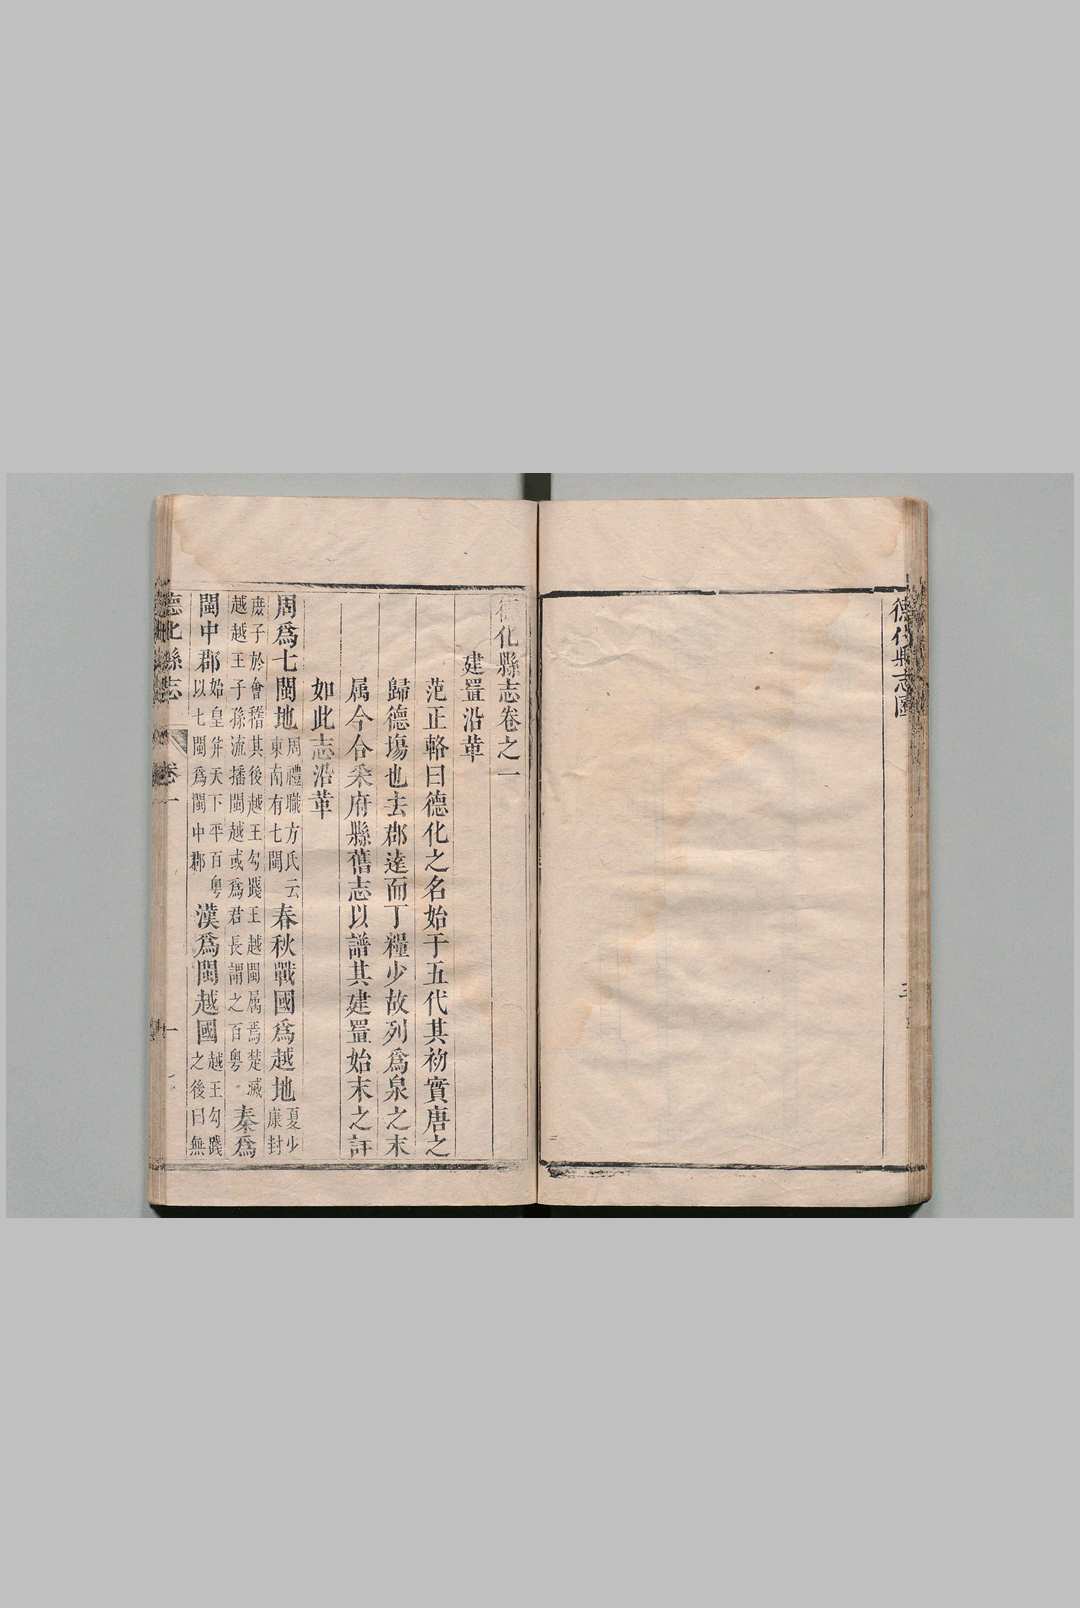 德化縣志圖
德化縣志卷之一
建置沿革
范正輅曰德化之名始于五代其初實唐之
歸德塲也去郡逺而丁糧少故列爲泉之末
属今合釆府縣舊志以譜其建置始末之詳
如此志沿革
周爲七閩地周禮職方氏云東南有七閩春秋戰國爲越地夏少康封
庶子於會稽其後越王勾踐王越閩属焉楚滅越越王子孫流播閩越或爲君長謂之百粤秦爲
閩中郡始皇并天下平百粤以七閩爲閩中郡漢爲閩越國越王勾踐之後曰無
德化縣志 卷一 一